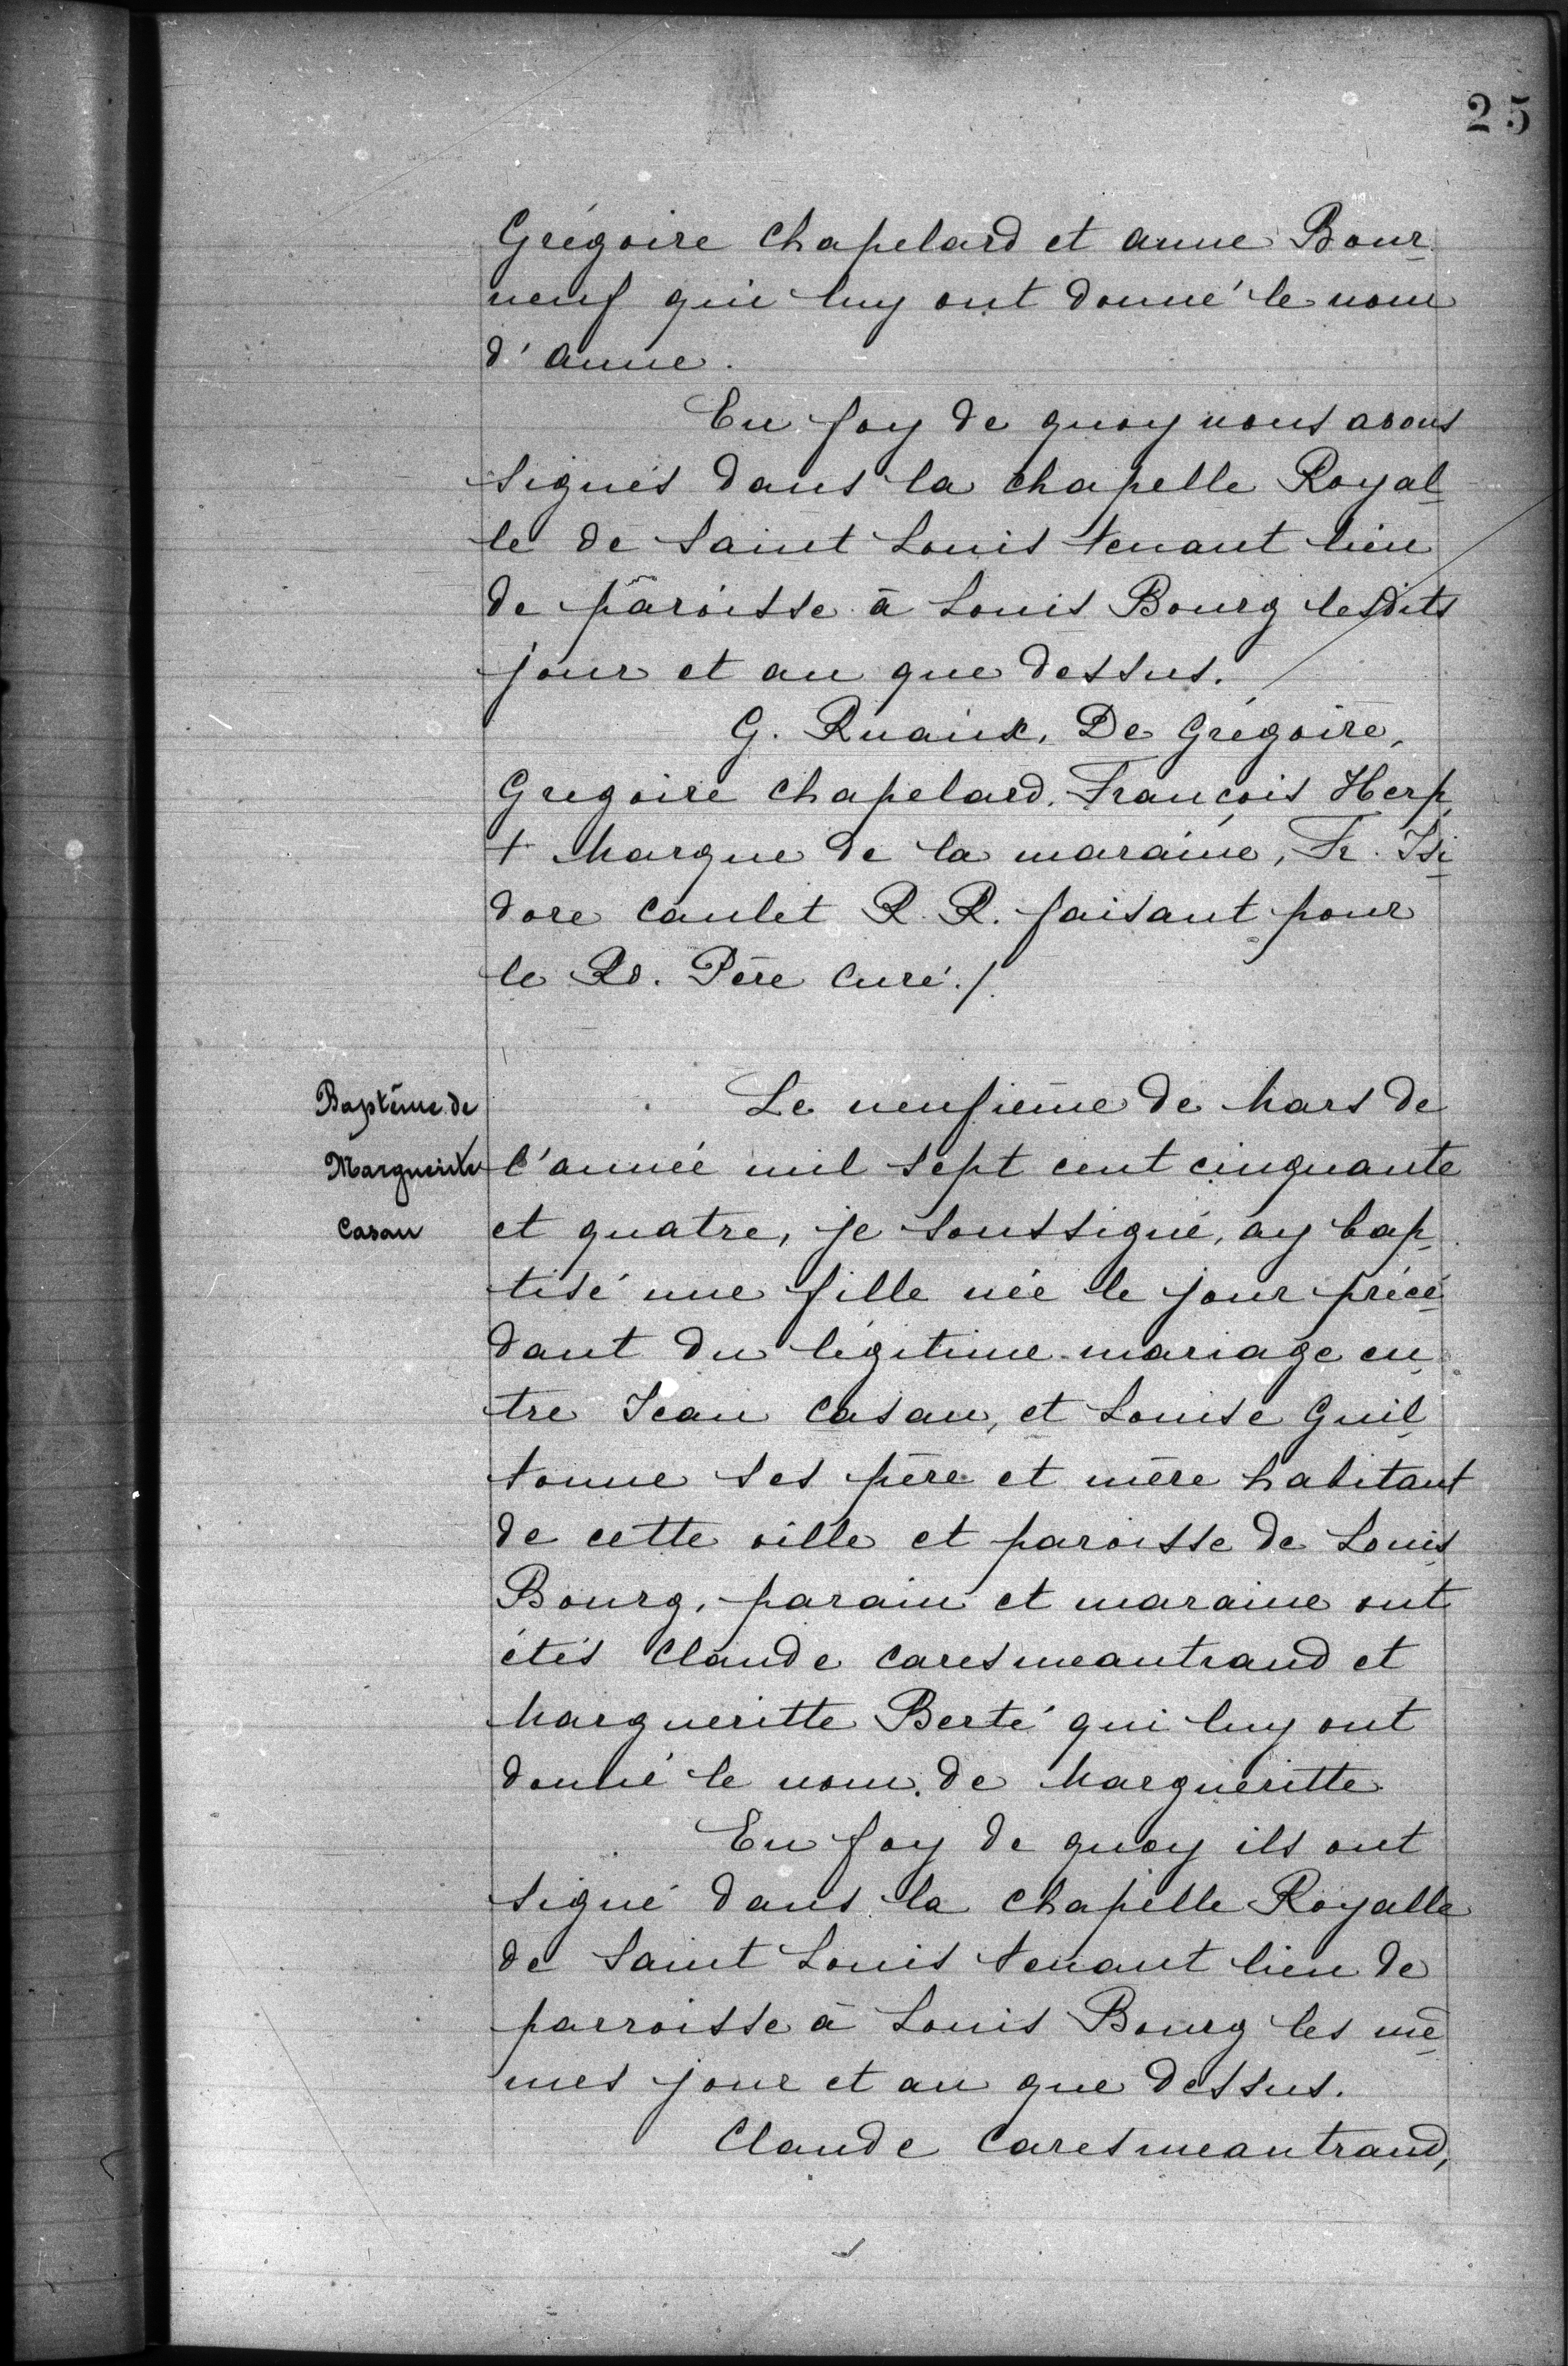 25
Grégoire Chapelard et anne Bour-
neuf qui luy ont donné le nom
d'anne.
En foy de quoy nous avons
signés dans la chapelle Royal-
le de Saint Louis tenant lieu
de paroisse à Louis Bourg lesdits
jour et an que dessus.
G. Ruaux, De Grégoire,
Gregoire Chapelard, François Herp,
+ Marque de la maraine, Fr. Isi-
dore Caulet R. R. faisant pour
le Rd. Père Curé./.
Baptême de
Marguerite
Casau
Le neufième de Mars de
l'année mil sept cent cinquante
et quatre, je soussigné, ay bap-
tisé une fille née le jour précé-
dant du légitime mariage en-
tre Jean Casau, et Louise Guil-
tonne ses père et mère habitant
de cette ville et paroisse de Louis
Bourg, parain et maraine ont
étés Claude Caresmeantrand et
Margueritte Berté qui luy ont
donné le nom de Margueritte
En foy de quoy ils ont
signé dans la Chapelle Royalle
de Saint Louis tenant lieu de
parroisse à Louis Bourg les mê-
mes jour et an que dessus.
Claude Caresmeantrand,